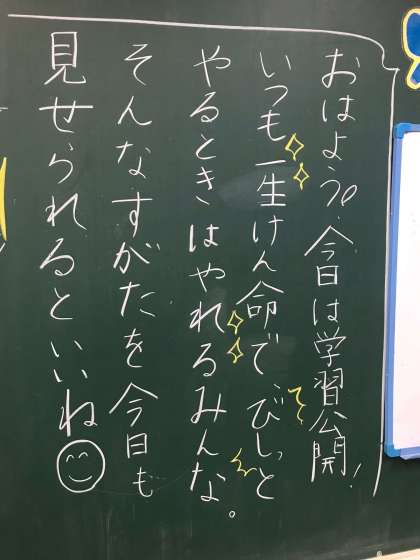 おはよう。今日は学習公開!
いつも一生けん命で びしっと
やるときはやれるみんな。
そんなすがたを今日も
見せられるといいね